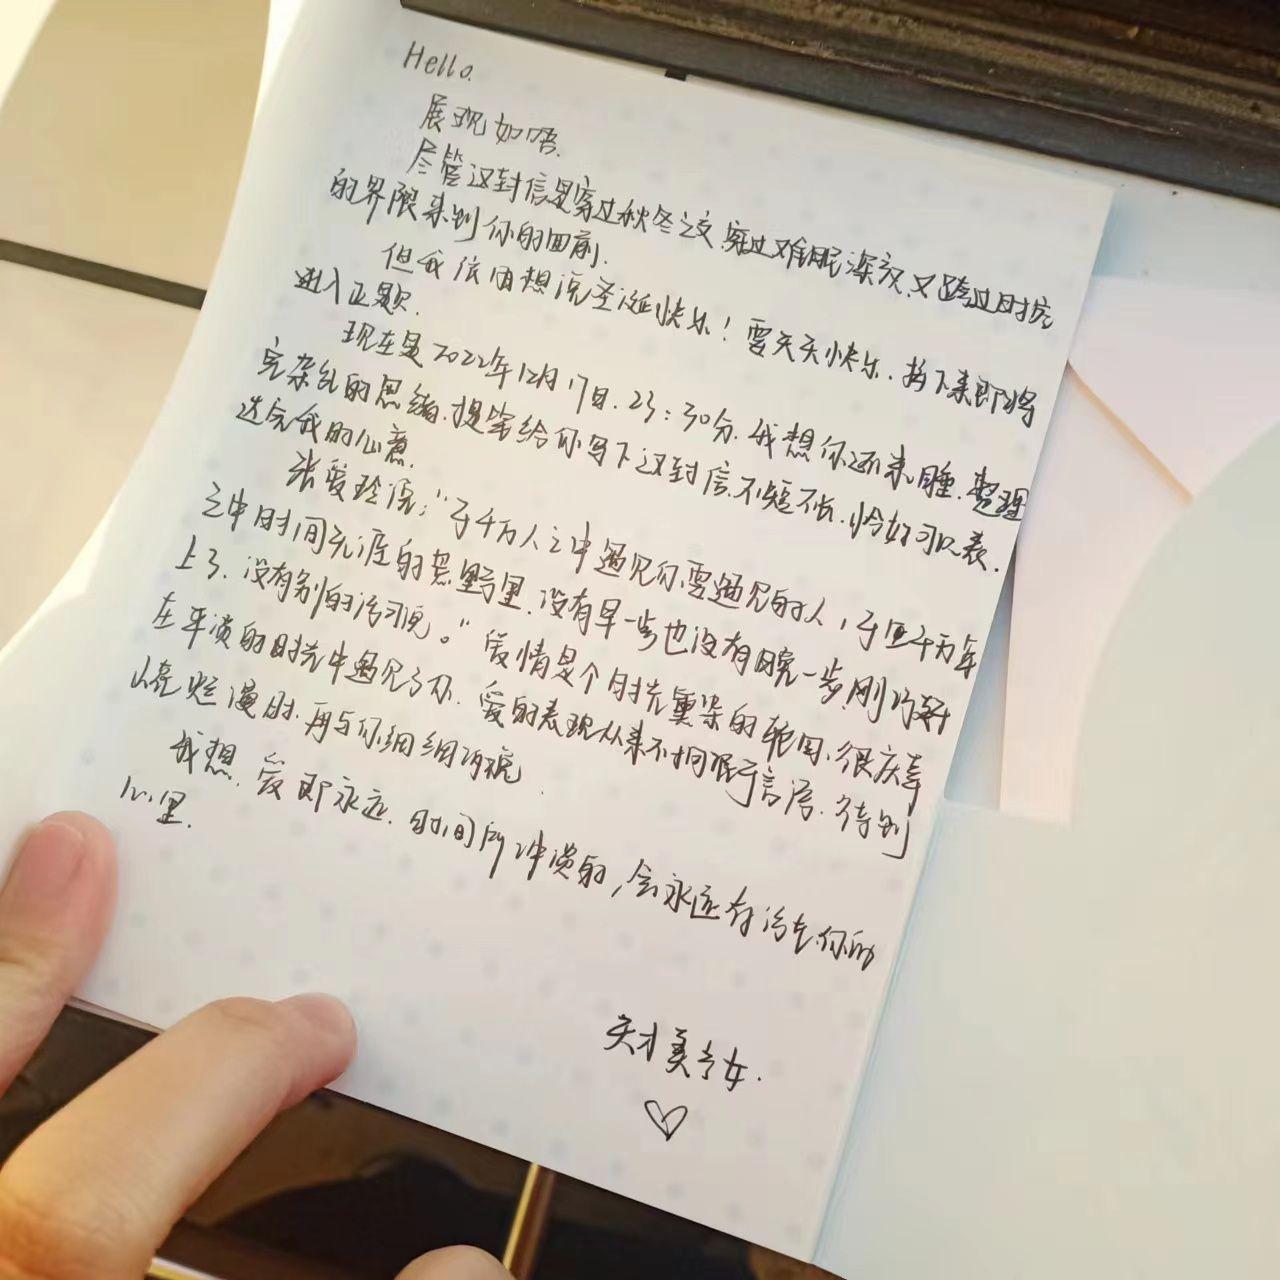 Hello.
展现如唔.
尽管这封信是穿过秋冬之交.穿过难眠深夜.又跨过时光
的界限来到你的面前.
但我依旧想说圣诞快乐！要天天快乐.接下来即将
进入正题.
现在是2022年12月17日.23:30分.我想你还未睡.整理
完杂乱的思绪.提笔给你写下这封信.不短不长.恰好可以表
达完我的心意.
张爱玲说:“于千万人之中遇见你要遇见的人,于亿千万年
之中时间无涯的荒野里.没有早一步也没有晚一步.刚巧赶
上了.没有别的话可说。”爱情是个时光熏染的轮回.很庆幸
在平淡的时光中遇见了你.爱的表现从来不拘限于言语.待到
山花烂漫时.再与你细细诉说.
我想.爱即永远.时间所冲淡的,会永远存活在你的
心里.
天才美少女.